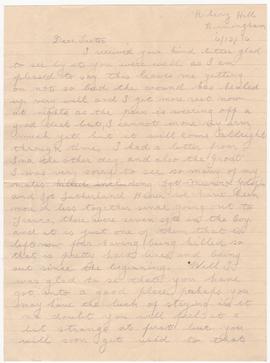 Hill
Birmingham
Dear Sister
I received your kind letter glad
to see by it you were well as I am
pleased to say this leave me getting
on not so bad the wound has healed
up very well and I get more rest now
at nights as the pain is wearing off a
good bit, I cannot move my arm
much yet but it will come allright
through time, I had a letter from
Ina the other day and also the
I was very sorry to see so many of my
mates including Sgt
and Sgt Sutherland
more or less together since going out to
France, there were seven of us in the
and it is just one of them that is
left now four having being killed so
that is pretty hard lines and being
out since the beginning. Well J
was glad to see that you have
got into a good place, perhaps you
may have the luck of staying in it
no doubt you will feel it a
bit strange at first but you
will soon get used to that